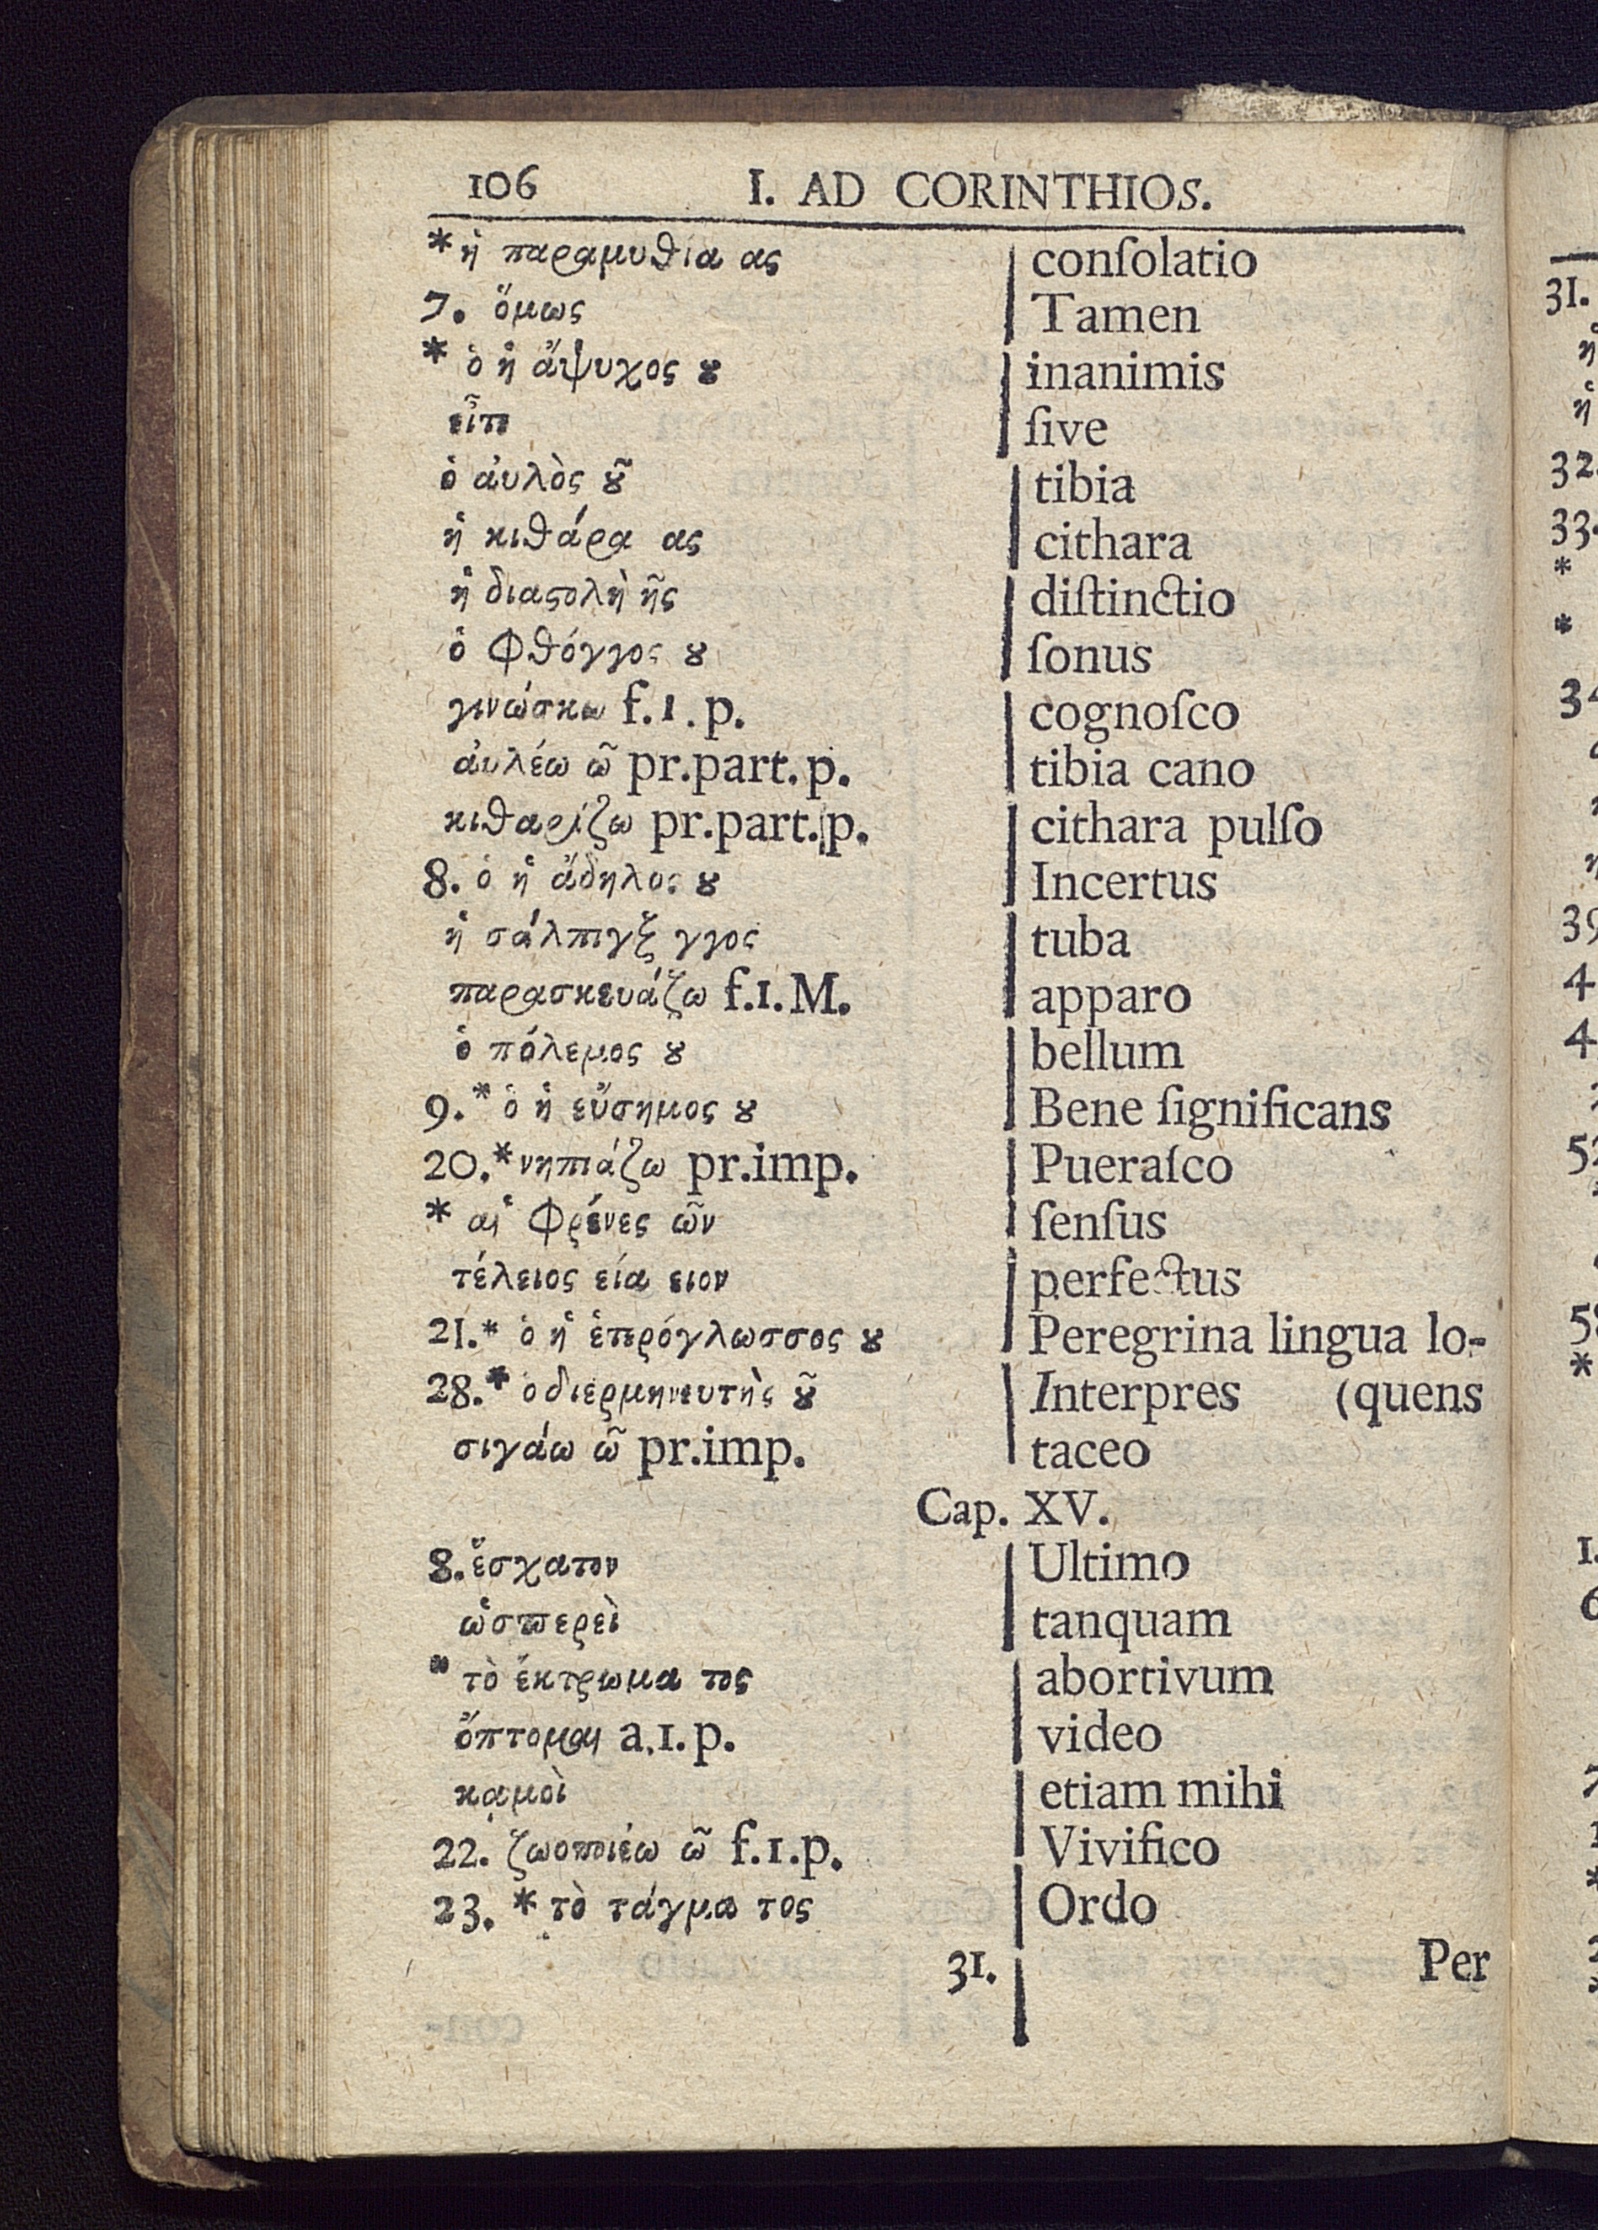 106 I. AD CORINTHIOS.
* ἡ παραμυθία ας | conſolatio
7. ὅμως | Tamen
* ὁ ἡ ἄψυχος ȣ | inanimis
εἶτε | ſive
ὁ ἀυλὸς ȣ͂ | tibia
ἡ κιθάρα ας | cithara
ἡ διαϛολὴ ῆς | diſtinctio
ὁ Φθόγγος ȣ | ſonus
γινώσκω f.1.p. | cognoſco
ἀυλέω ῶ pr.part.p. | tibia cano
κιθαρίζω pr.part.p. | cithara pulſo
8. ὁ ἡ ἄδηλος ȣ | Incertus
ἡ σάλπιγξ γγος | tuba
παρασκευάζω f.1.M. | apparo
ὁ πόλεμος ȣ | bellum
9.* ὁ ἡ εὔσημος ȣ | Bene ſignificans
20.* νηπιάζω pr.imp. | Pueraſco
* αἱ Φρένες ῶν | ſenſus
τέλειος εία ειον | perfectus
21.* ὁ ἡ ἑτερόγλωσσος ȣ | Peregrina lingua lo-
28.* ὁ διερμηνευτὴς ȣ͂ | Interpres (quens
σιγάω ῶ pr.imp. | taceo
Cap. XV.
8. ἔσχατον | Ultimo
ὡσπερεὶ | tanquam
* τὸ ἔκτρωμα τος | abortivum
ὄπτομαι a.1.p. | video
κᾳμοὶ | etiam mihi
22. ζωοποιέω ῶ f.1.p. | Vivifico
23. * τὸ τάγμα τος | Ordo
31. | Per
31.
32.
33.
*
*
34
39
4
4
52
58
*
1.
6
7